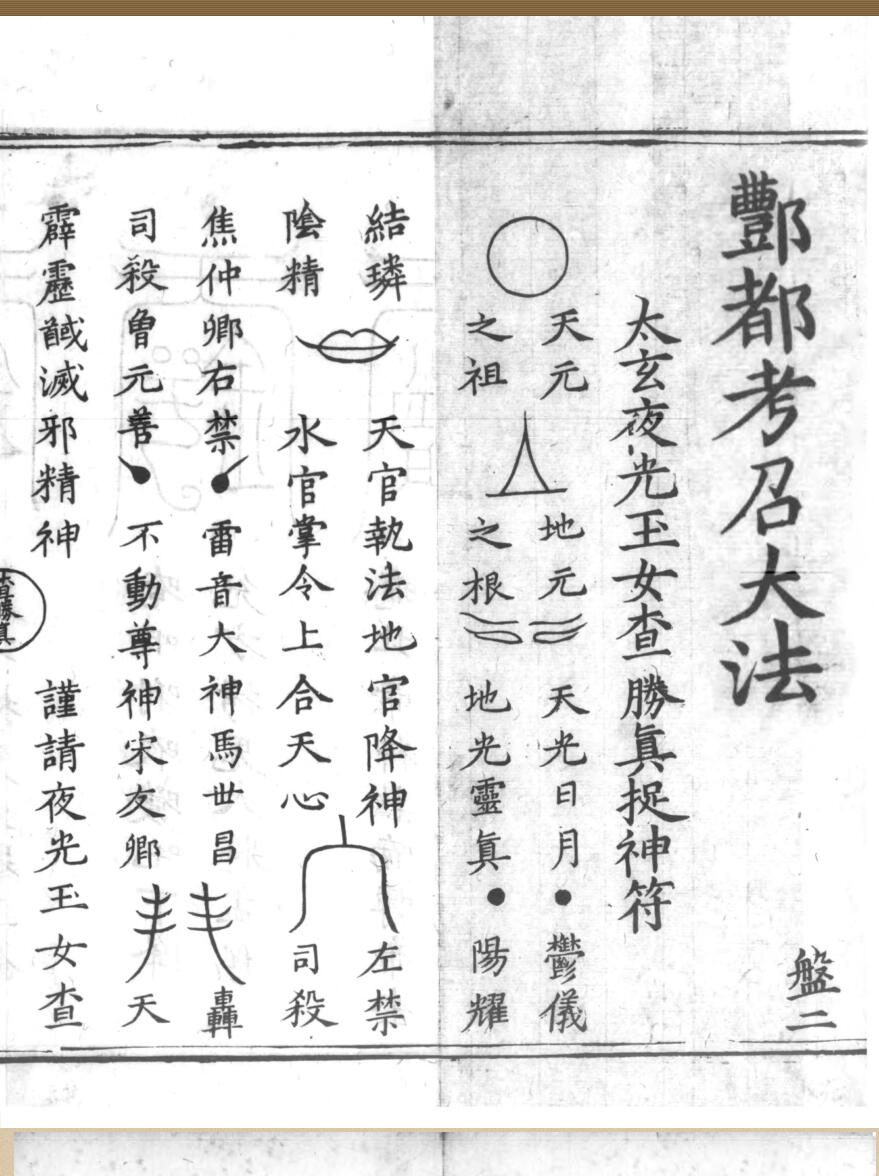 酆都考召大法
盤二
太玄夜光玉女查勝眞捉神符
天元
之祖
地元
之根
天光日月
地光靈眞
鬱儀
陽耀
結璘
陰精
天官執法地官降神
水官掌令上合天心
左禁
司殺
焦仲卿右禁
司殺魯元善
雷音大神馬世昌
不動尊神宋友卿
轟
天
霹靂馘滅邪精神
查勝眞
謹請夜光玉女查